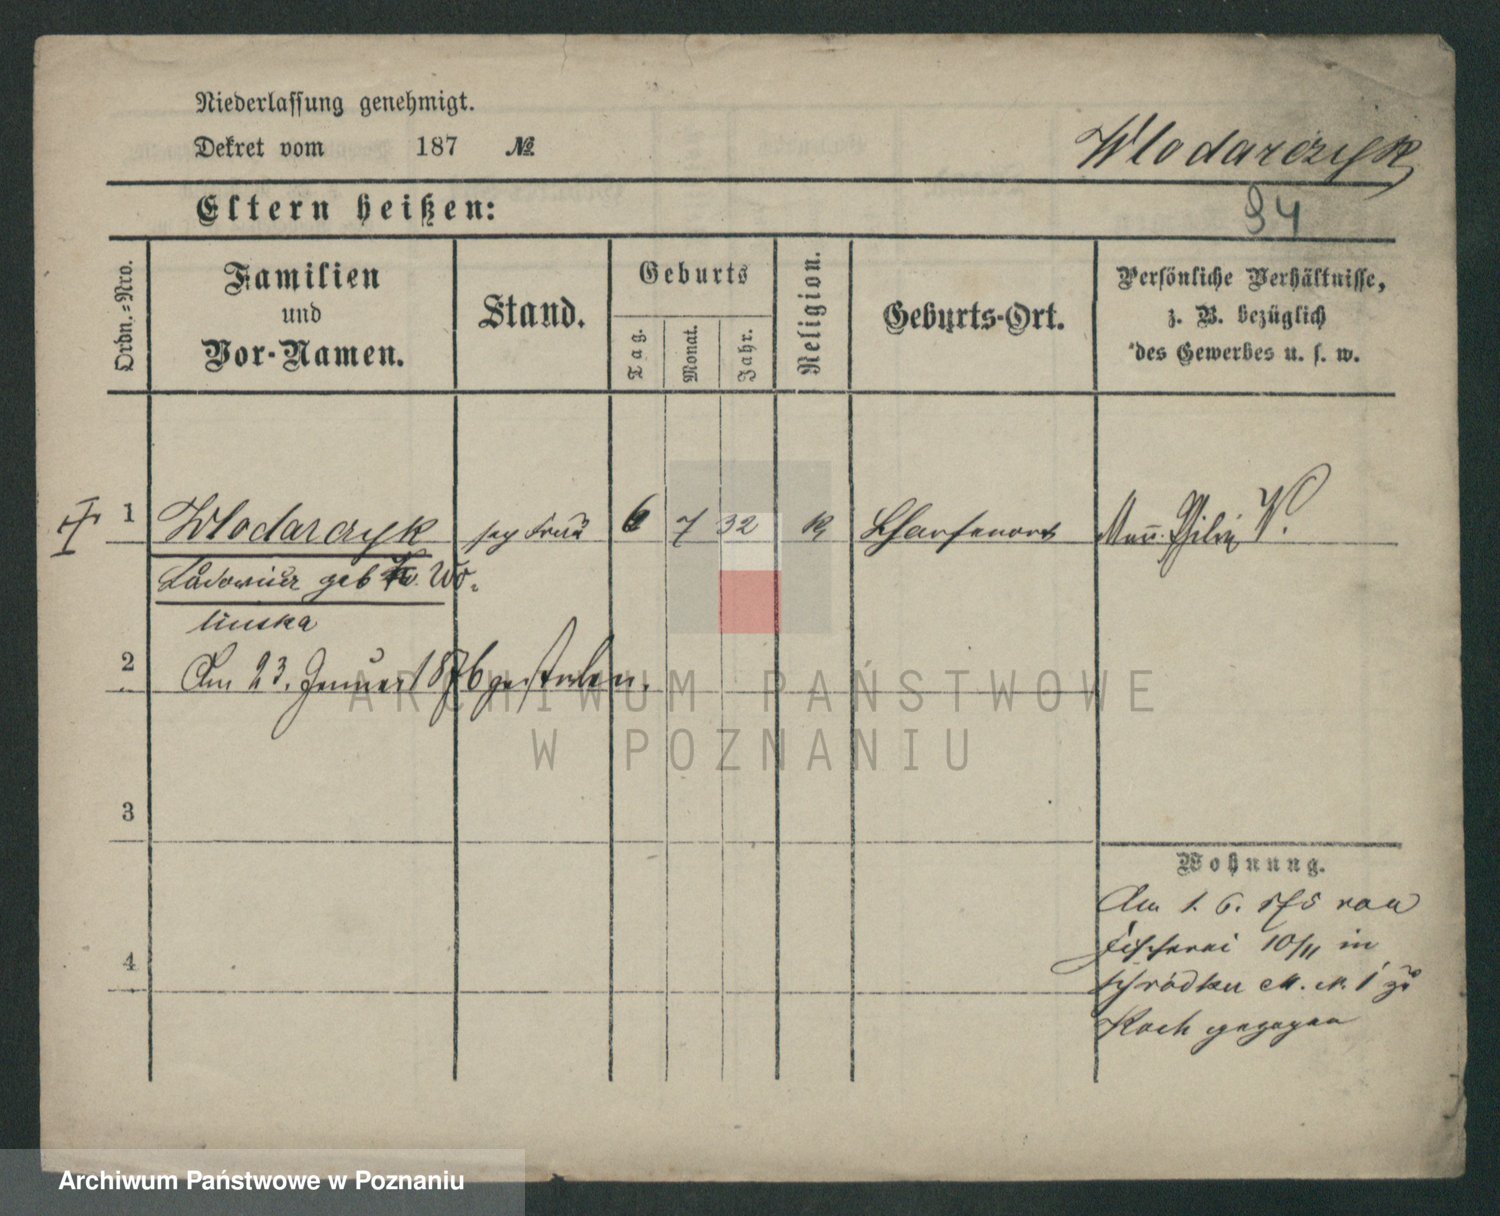 Niederlassung genehmigt.
Dekret vom 187 №
Wlodarczyk
94
Eltern heißen:
Ordn.-Nro.
Familien
und
Vor-Namen.
Stand.
Geburts
Tag.
Monat.
Jahr.
Religion.
Geburts-Ort.
Persönliche Verhältnisse,
z. B. bezüglich
des Gewerbes u. s. w.
1 Wlodarczyk 6 7 32 k Scharfenort
geb Wo-
linska
2 Am 23. Januar 1876 gestorben.
3
4
Wohnung.
Am 1. 6. 875 von
Fischerei 10/11 in
Schrodka M. N. 1 zu
Koch gezogen
ARCHIWUM PAŃSTWOWE
W POZNANIU
Archiwum Państwowe w Poznaniu